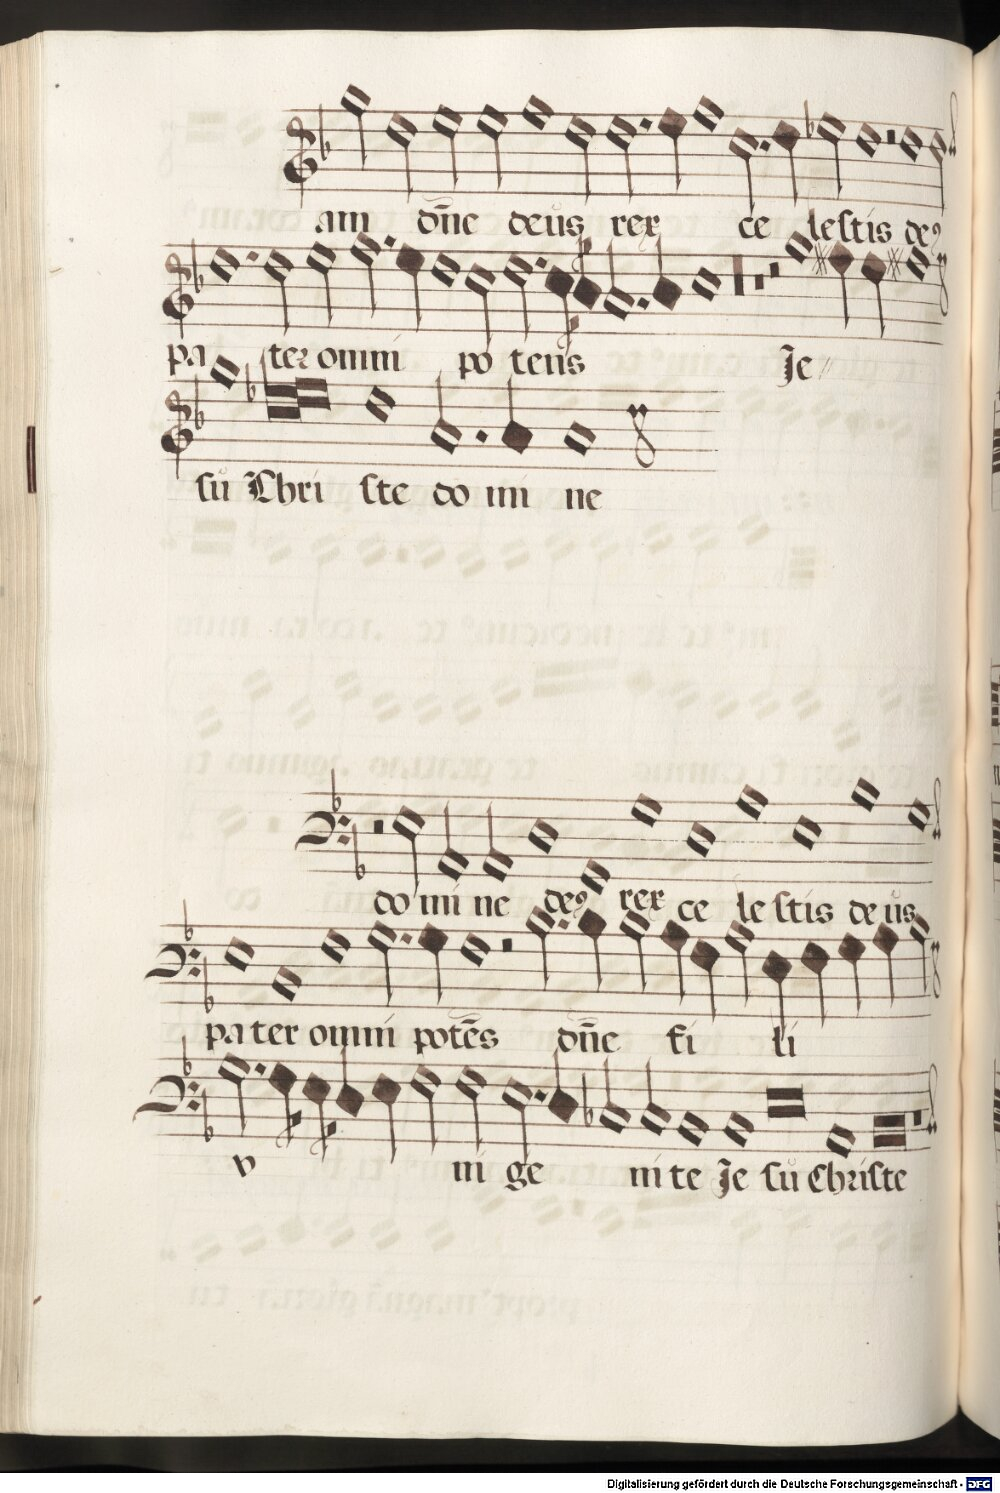 am dn̄e deus rex ce lestis deꝰ
pa ter omni po tens Je
su Chri ste do mi ne
do mi ne deꝰ rex ce le stis de us
pa ter omni potēs dn̄e fi li
v ni ge ni te Je su Christe
Digitalisierung gefördert durch die Deutsche Forschungsgemeinschaft - DFG